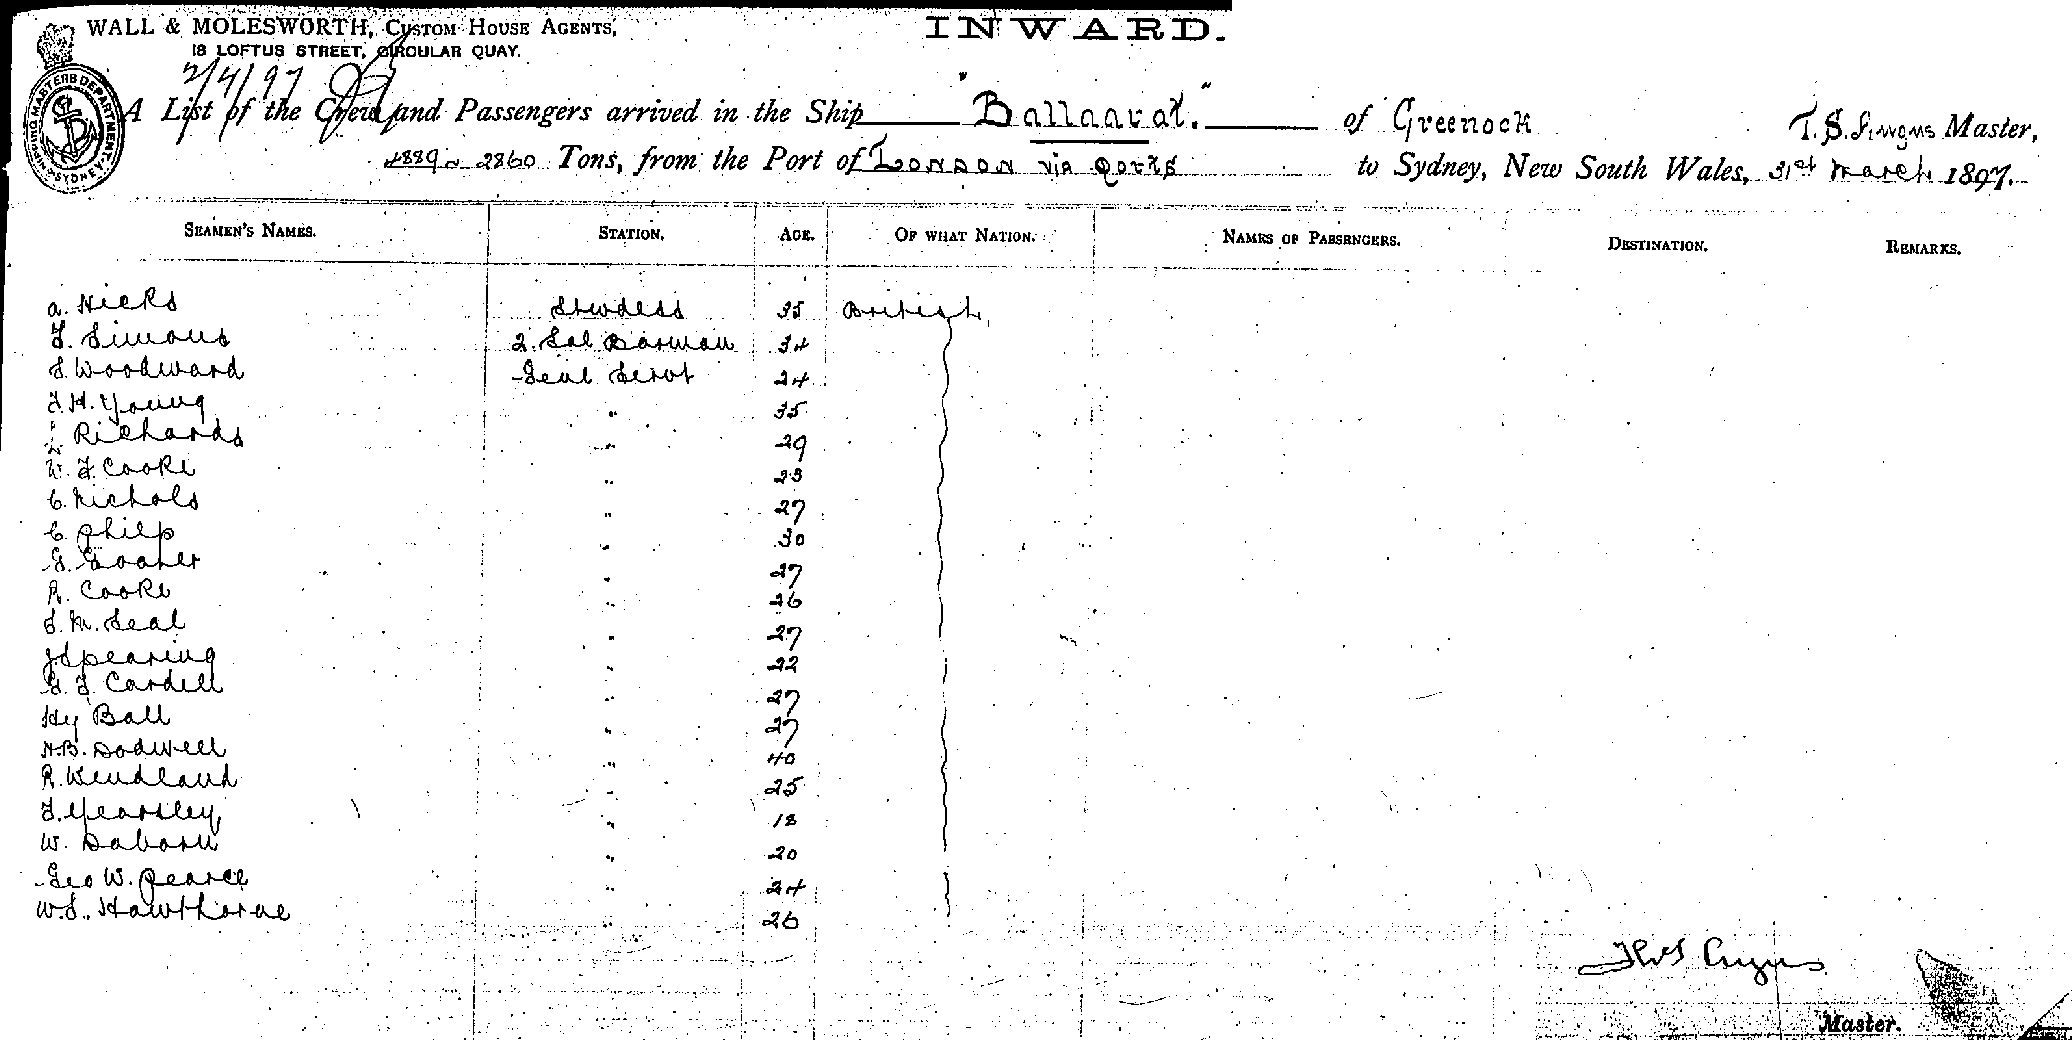 WALL & MOLESWORTH, CUSTOM HOUSE AGENTS,
18 LOFTUS STREET, CIRCULAR QUAY.
INWARD.
2/4/97
SHIPPING MASTERS DEPARTMENT SYDNEY
A List of the Crew and Passengers arrived in the Ship "Ballaarat." of Greenock T.S. Angus Master,
2860 Tons, from the Port of London via Ports to Sydney, New South Wales, 31st March 1897.
SEAMEN'S NAMES. STATION. AGE. OF WHAT NATION. NAMES OF PASSENGERS. DESTINATION. REMARKS.
A. Hicks Stwdess 35 British
F. Simons 2. Sal Barman 34
S. Woodward Genl Servt 24
F. H. Young " 35
Richards " 29
W. F. Cooke " 23
C. Nichols " 27
C. Philp " 30
G. " 27
R. Cooke " 26
S. M. Seal " 27
J. Spearing " 22
G. F. Cardell " 27
Hy Ball " 27
H. B. Dodwell " 40
R. Wendland " 25
F. Yearsley " 18
W. Daborn " 20
Geo W. Pearce " 24
W. S. Hawthorne " 26
Thos Angus
Master.